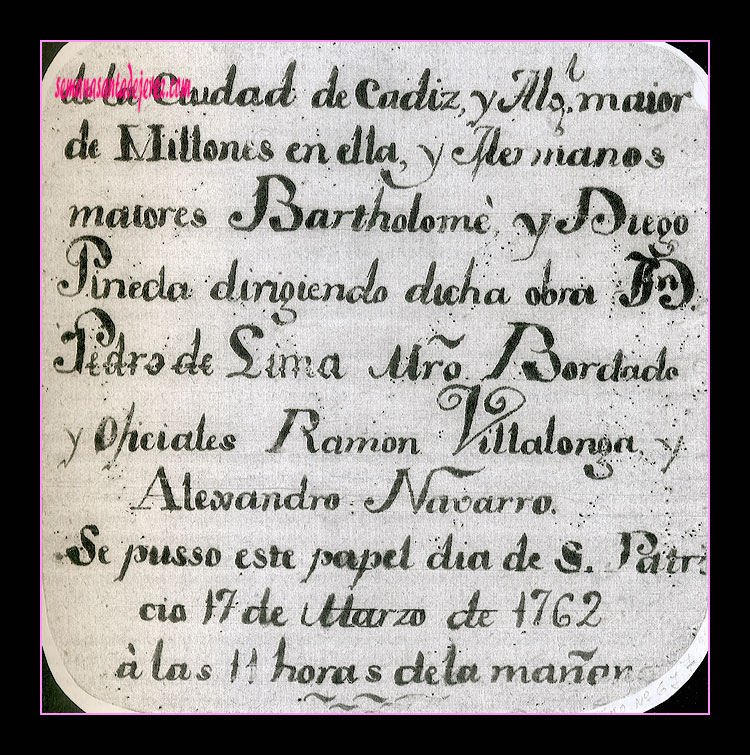 semanasantadejerez.com
de la Ciudad de Cadiz, y Alg.l maior
de Millones en ella, y Hermanos
maiores Bartholomè, y Diego
Pineda dirigiendo dicha obra
Pedro de Lima Mrõ. Bordado
y Oficiales Ramon Villalonga, y
Alexandro Navarro.
Se pusso este papel dia de S. Patri
cio 17 de Marzo de 1762
à las 11 horas de la mañana